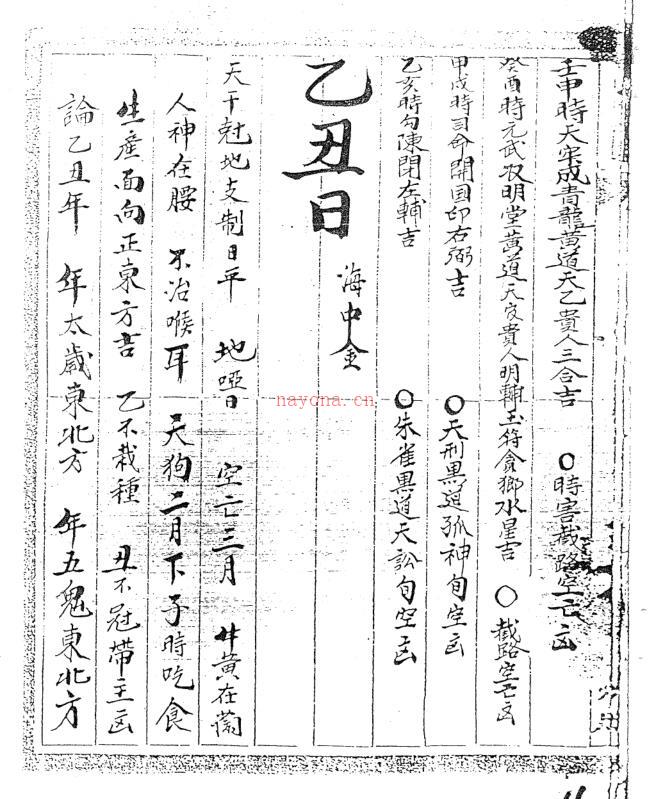 壬申時天牢成青龍黃道天乙貴人三合吉 〇時害截路空亡凶
癸酉時元武收明堂黃道天官貴人明輔玉符貪狼水星吉 〇截路空亡凶
甲戌時司命開國印右弼吉 〇天刑黑道孤神旬空凶
乙亥時勾陳閉左輔吉 〇朱雀黑道天訟旬空凶
乙丑日 海中金
天干尅地支制日平 地啞日 空亡三月 牛黃在
人神在腰 不治喉耳 天狗二月下子時吃食
生產面向正東方吉 乙不栽種 丑不冠帶主凶
論乙丑年 年太歲東北方 年五鬼東北方
nayona.cn